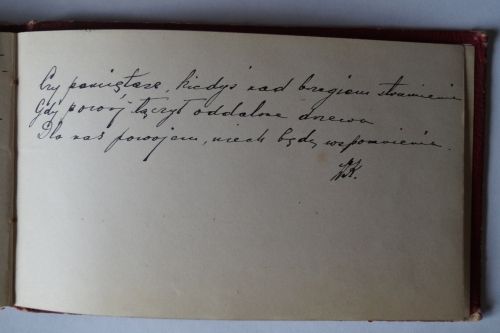 Czy pamiętasz, kiedyś nad brzegiem strumienia
Gdy powój łączył oddalone drzewa
Dla nas powojem, niech będą wspomnienia.
WK.